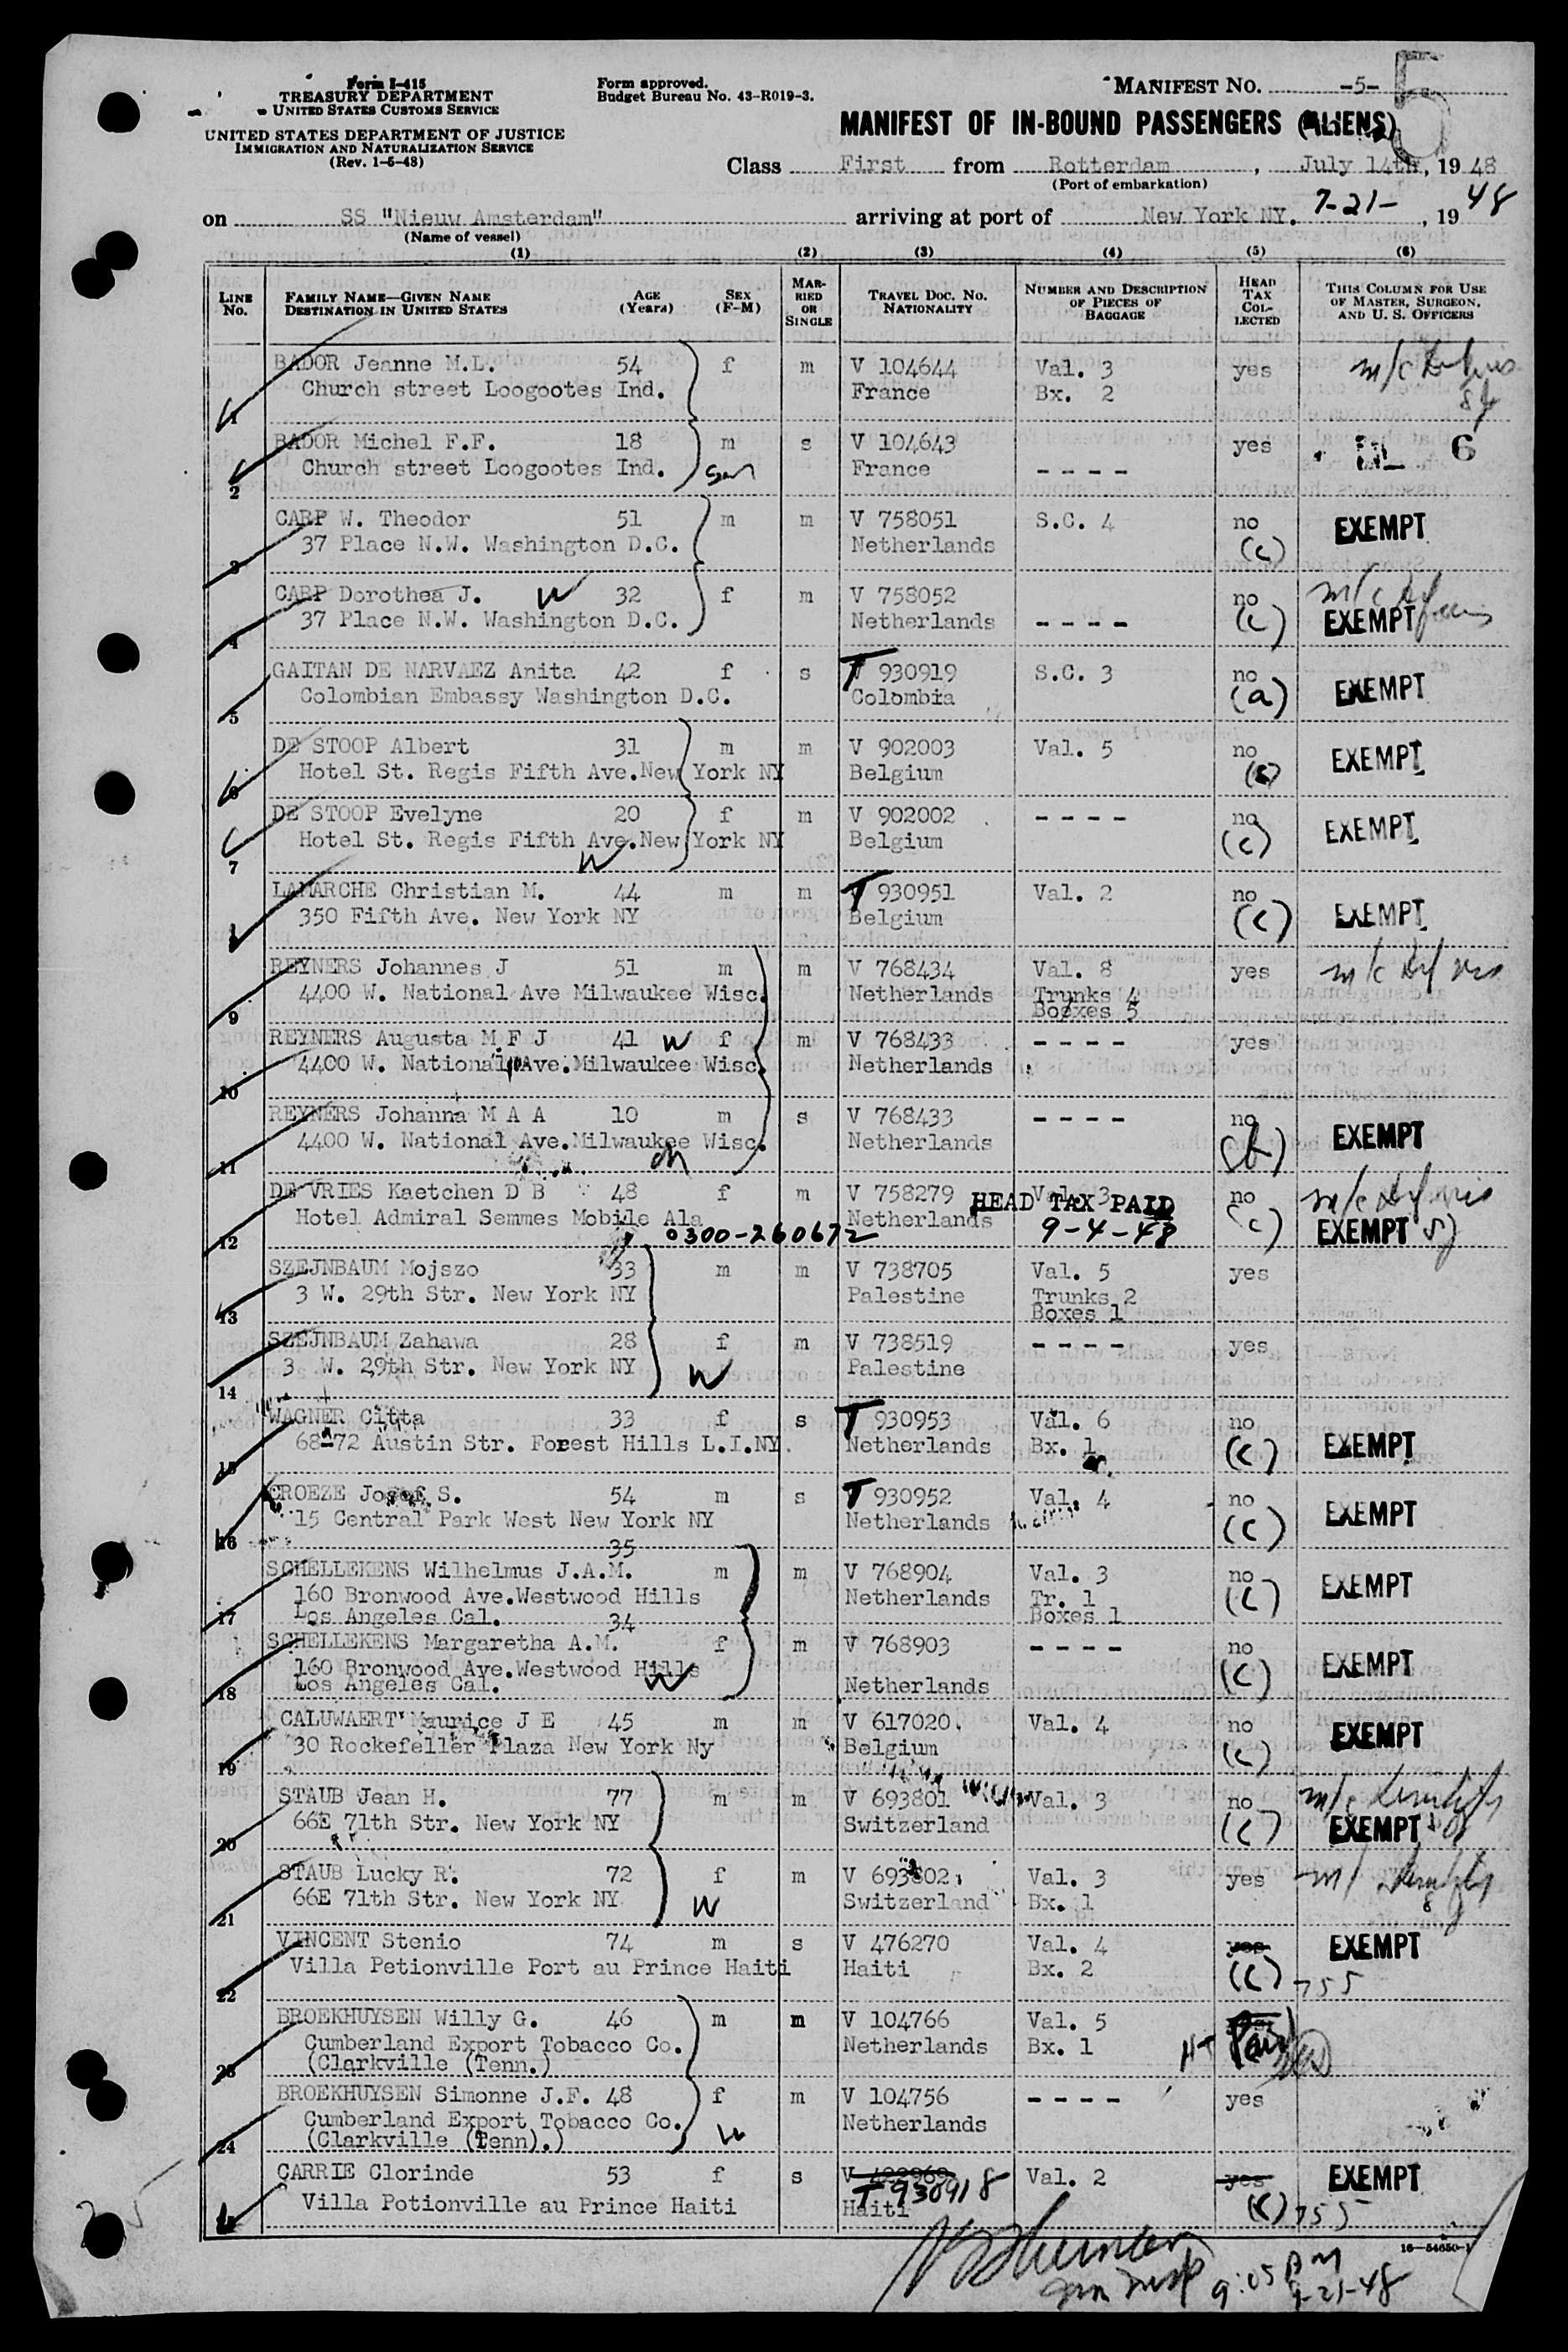 Form I-415
TREASURY DEPARTMENT
UNITED STATES CUSTOMS SERVICE
UNITED STATES DEPARTMENT OF JUSTICE
IMMIGRATION AND NATURALIZATION SERVICE
(Rev. 1-6-48)
Form approved.
Budget Bureau No. 43-R019-3.
MANIFEST NO. -5-
5
MANIFEST OF IN-BOUND PASSENGERS (ALIENS)
Class First from Rotterdam, July 14th, 19 48
(Port of embarkation)
on SS "Nieuw Amsterdam" arriving at port of New York NY. 7-21-, 19 48
(Name of vessel)
(1) (2) (3) (4) (5) (6)
LINE No. FAMILY NAME—GIVEN NAME DESTINATION IN UNITED STATES AGE (Years) SEX (F-M) MARRIED OR SINGLE TRAVEL DOC. NO. NATIONALITY NUMBER AND DESCRIPTION OF PIECES OF BAGGAGE HEAD TAX COLLECTED THIS COLUMN FOR USE OF MASTER, SURGEON, AND U. S. OFFICERS
BADOR Jeanne M.L. 54 f m V 104644 Val. 3 yes m/c
1 Church street Loogootes Ind. France Bx. 2
BADOR Michel F.F. 18 m s V 104643 yes 6
2 Church street Loogootes Ind. Son France ----
CARP W. Theodor 51 m m V 758051 S.C. 4 no EXEMPT
3 37 Place N.W. Washington D.C. Netherlands (c)
CARP Dorothea J. W 32 f m V 758052 no m/c
4 37 Place N.W. Washington D.C. Netherlands ---- (c) EXEMPT
GAITAN DE NARVAEZ Anita 42 f s T 930919 S.C. 3 no EXEMPT
5 Colombian Embassy Washington D.C. Colombia (a)
DE STOOP Albert 31 m m V 902003 Val. 5 no EXEMPT
6 Hotel St. Regis Fifth Ave.New York NY Belgium (c)
DE STOOP Evelyne 20 f m V 902002 ---- no EXEMPT
7 Hotel St. Regis Fifth Ave.New York NY W Belgium (c)
LAMARCHE Christian M. 44 m m T 930951 Val. 2 no EXEMPT
8 350 Fifth Ave. New York NY Belgium (c)
REYNERS Johannes J 51 m m V 768434 Val. 8 yes m/c
9 4400 W. National Ave Milwaukee Wisc. Netherlands Trunks 4
Boxes 5
REYNERS Augusta M F J 41 W f m V 768433 ---- yes
10 4400 W. National Ave.Milwaukee Wisc. Netherlands
REYNERS Johanna M A A 10 m s V 768433 ---- no EXEMPT
11 4400 W. National Ave.Milwaukee Wisc. Netherlands (b)
DE VRIES Kaetchen D B 48 f m V 758279 Val. 3 no m/c
HEAD TAX PAID
12 Hotel Admiral Semmes Mobile Ala Netherlands (c) EXEMPT
0300-260672 9-4-48
SZEJNBAUM Mojszo 33 m m V 738705 Val. 5 yes
13 3 W. 29th Str. New York NY Palestine Trunks 2
Boxes 1
SZEJNBAUM Zahawa 28 f m V 738519 ---- yes
14 3 W. 29th Str. New York NY W Palestine
WAGNER Citta 33 f s T 930953 Val. 6 no EXEMPT
15 68-72 Austin Str. Forest Hills L.I.NY. Netherlands Bx. 1 (c)
CROEZE Josef S. 54 m s T 930952 Val. 4 no EXEMPT
16 15 Central Park West New York NY Netherlands (c)
35
SCHELLEKENS Wilhelmus J.A.M. m m V 768904 Val. 3 no EXEMPT
160 Bronwood Ave.Westwood Hills Netherlands Tr. 1 (c)
17 Los Angeles Cal. 34 Boxes 1
SCHELLEKENS Margaretha A.M. f m V 768903 ---- no EXEMPT
160 Bronwood Ave.Westwood Hills W Netherlands (c)
18 Los Angeles Cal.
CALUWAERT Maurice J E 45 m m V 617020 Val. 4 no EXEMPT
19 30 Rockefeller Plaza New York Ny Belgium (c)
STAUB Jean H. 77 m m V 693801 Val. 3 no m/c
20 66E 71th Str. New York NY Switzerland (c) EXEMPT
STAUB Lucky R. 72 f m V 693802 Val. 3 yes
21 66E 71th Str. New York NY W Switzerland Bx. 1
VINCENT Stenio 74 m s V 476270 Val. 4 yes EXEMPT
22 Villa Petionville Port au Prince Haiti Haiti Bx. 2 (c) 755
BROEKHUYSEN Willy G. 46 m m V 104766 Val. 5
Cumberland Export Tobacco Co. Netherlands Bx. 1 HT Paid
23 (Clarkville (Tenn.)
BROEKHUYSEN Simonne J.F. 48 f m V 104756 ---- yes
Cumberland Export Tobacco Co. W Netherlands
24 (Clarkville (Tenn).)
CARRIE Clorinde 53 f s T 930918 Val. 2 yes EXEMPT
25 Villa Potionville au Prince Haiti Haiti (c) 755
16—54650-1
9:05 PM
7-21-48